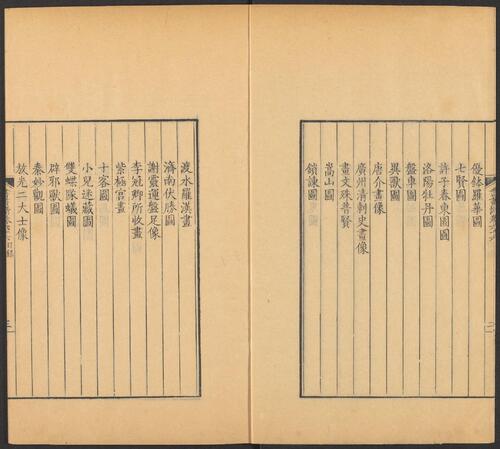 優鉢羅華圖
七賢圖
許子春東園圖
洛陽牡丹圖
盤車圖
異獸圖
唐介畫像
廣州清刺史畫像
畫文殊普賢
嵩山圖
鎖諫圖
渡水羅漢畫
濟南伏勝圖
謝靈運盤足像
李冠卿所收畫
紫極宮畫
十客圖
小兒迷藏圖
雙蝶隊蟻圖
辟邪獸圖
秦妙觀圖
放光二大士像
三